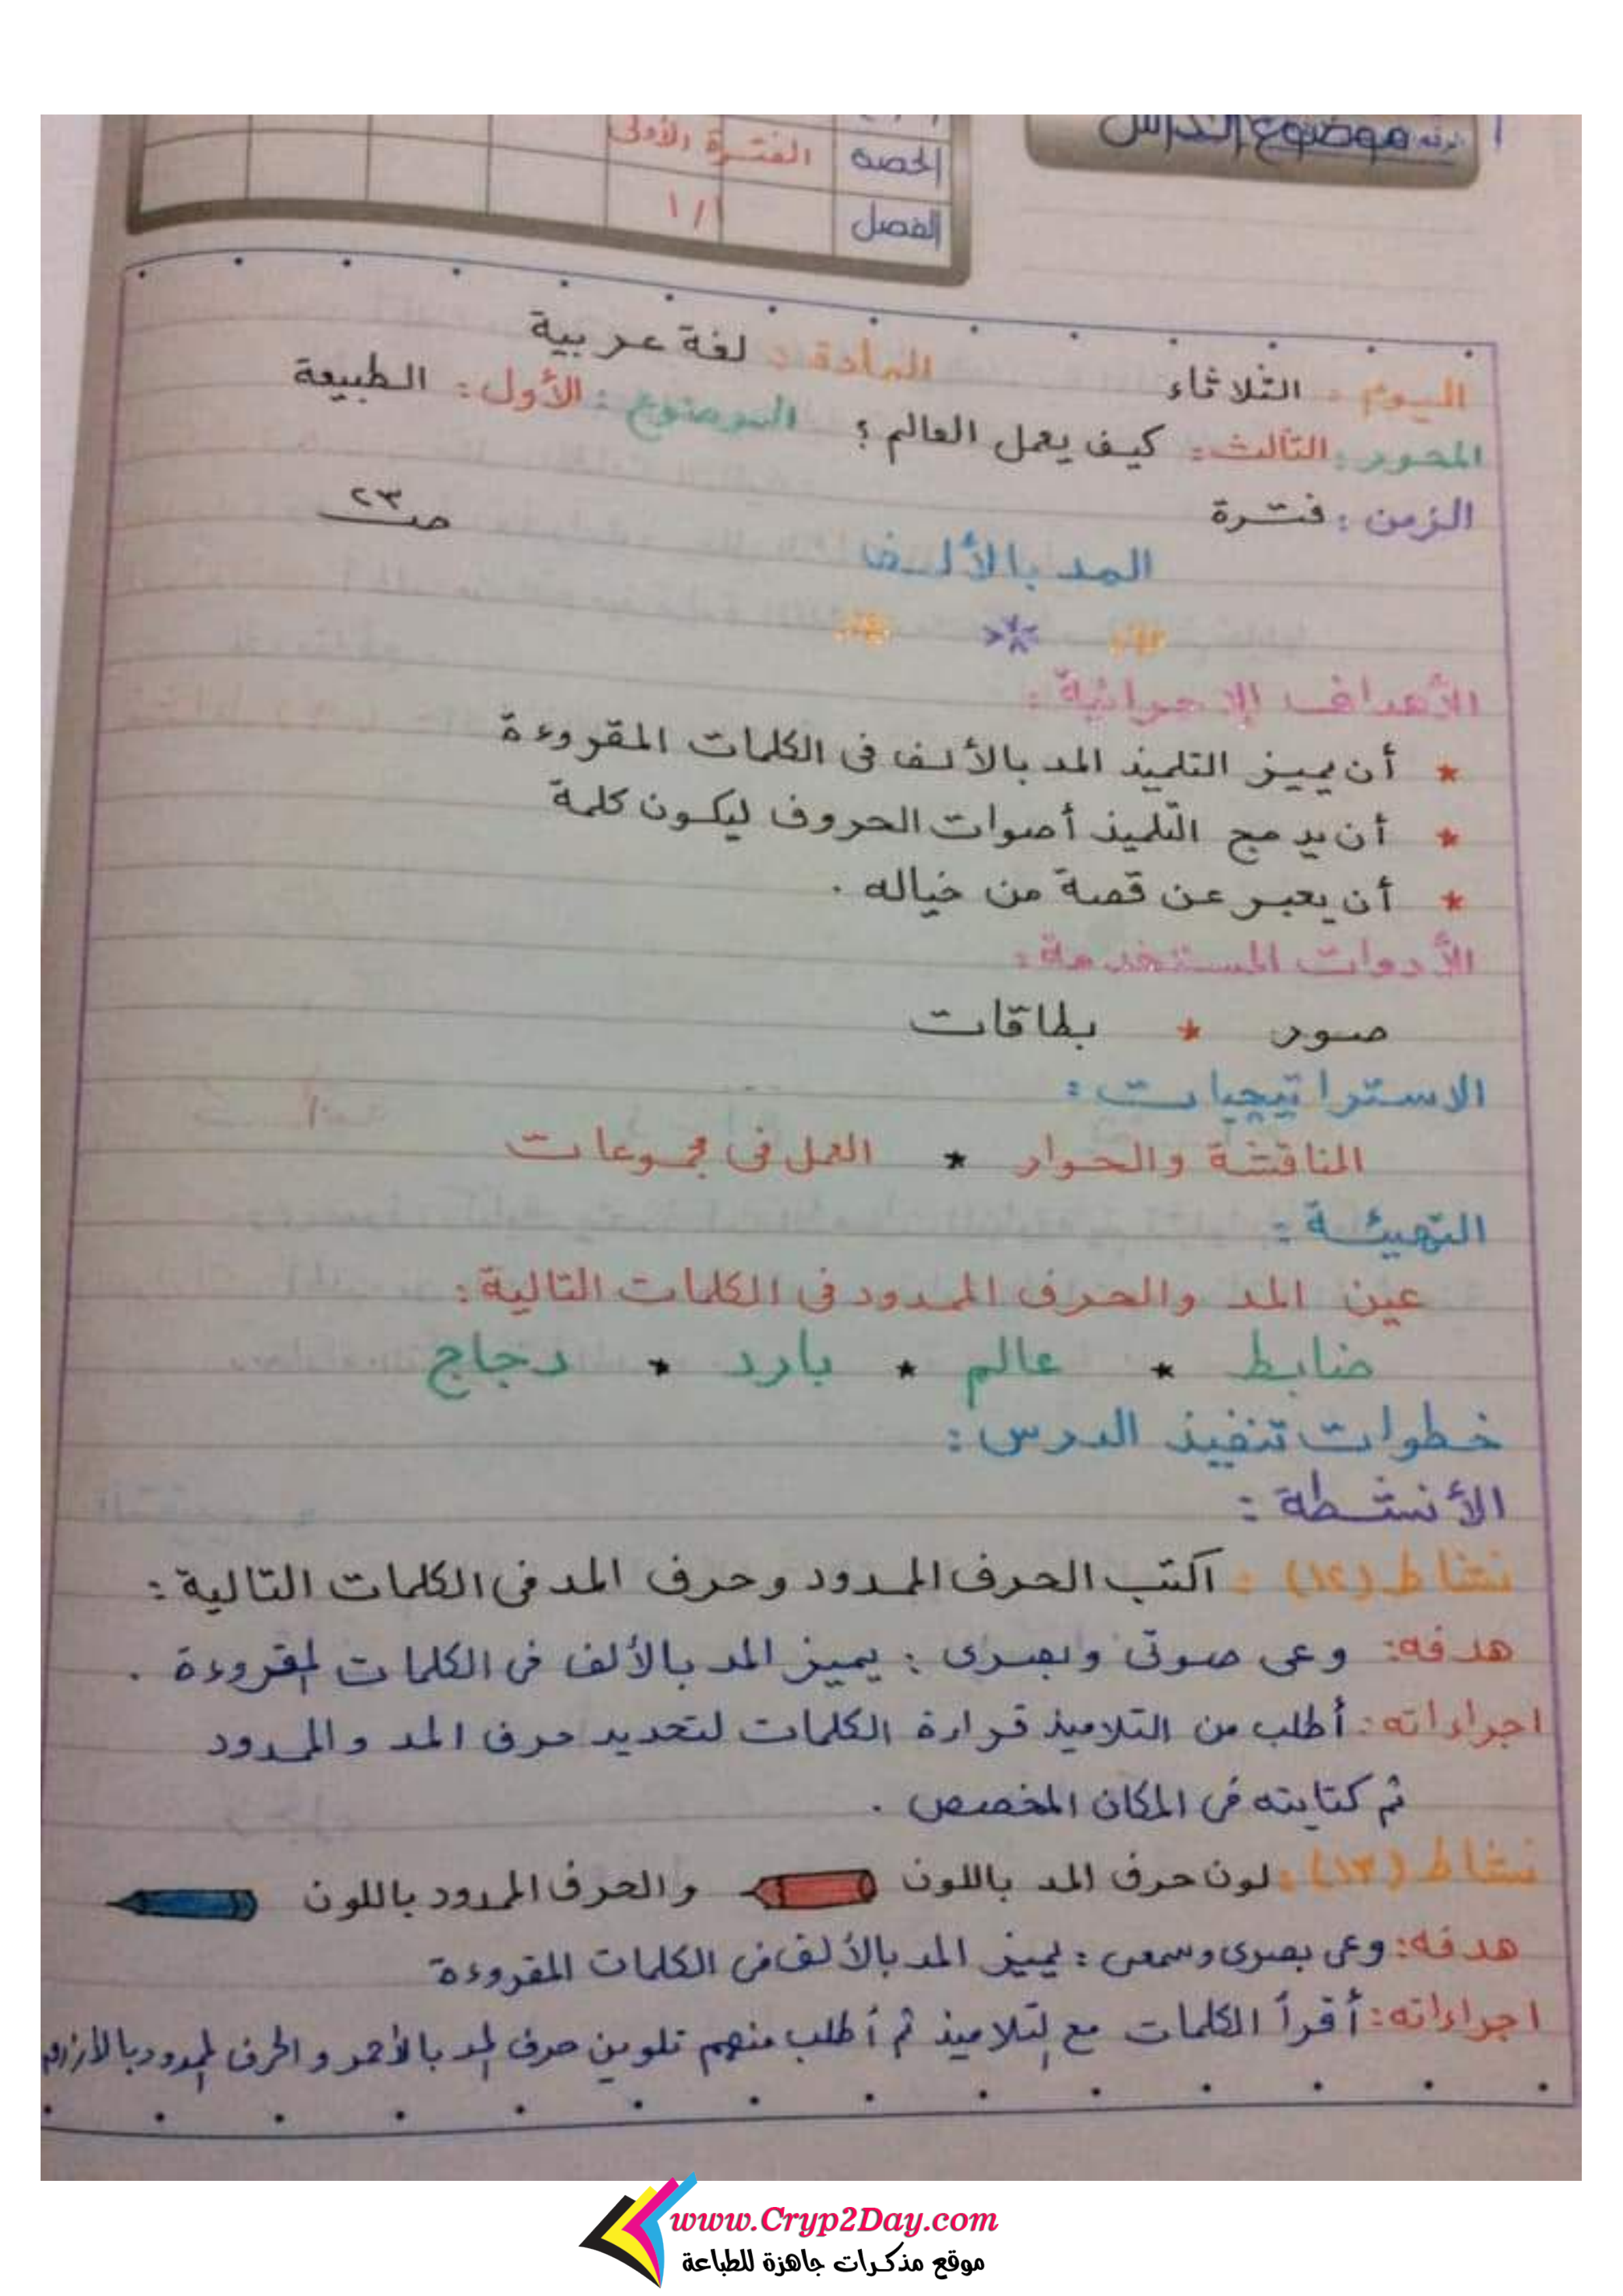 موضوع الدرس
الحصة الفترة الأولى
الفصل ١/١
اليوم : الثلاثاء المادة : لغة عربية
المحور : الثالث : كيف يعمل العالم ؟ الموضوع : الأول : الطبيعة
الزمن : فترة ص ٢٣
المد بالألف
الأهداف الإجرائية :
* أن يميز التلميذ المد بالألف فى الكلمات المقروءة
* أن يدمج التلميذ أصوات الحروف ليكون كلمة
* أن يعبر عن قصة من خياله .
الأدوات المستخدمة :
صور * بطاقات
الاستراتيجيات :
المناقشة والحوار * العمل فى مجموعات
التهيئة :
عين المد والحرف الممدود فى الكلمات التالية :
ضابط * عالم * بارد * دجاج
خطوات تنفيذ الدرس :
الأنشطة :
نشاط (١٢) : اكتب الحرف الممدود وحرف المد فى الكلمات التالية :
هدفه : وعى صوتى وبصرى : يميز المد بالألف فى الكلمات المقروءة .
اجراءاته : أطلب من التلاميذ قراءة الكلمات لتحديد حرف المد والممدود
ثم كتابته فى المكان المخصص .
نشاط (١٣) : لون حرف المد باللون والحرف الممدود باللون
هدفه : وعى بصرى وسمعى : يميز المد بالألف فى الكلمات المقروءة
اجراءاته : أقرأ الكلمات مع التلاميذ ثم أطلب منهم تلوين حرف المد بالأحمر و الحرف الممدود بالأزرق
www.Cryp2Day.com
موقع مذكرات جاهزة للطباعة